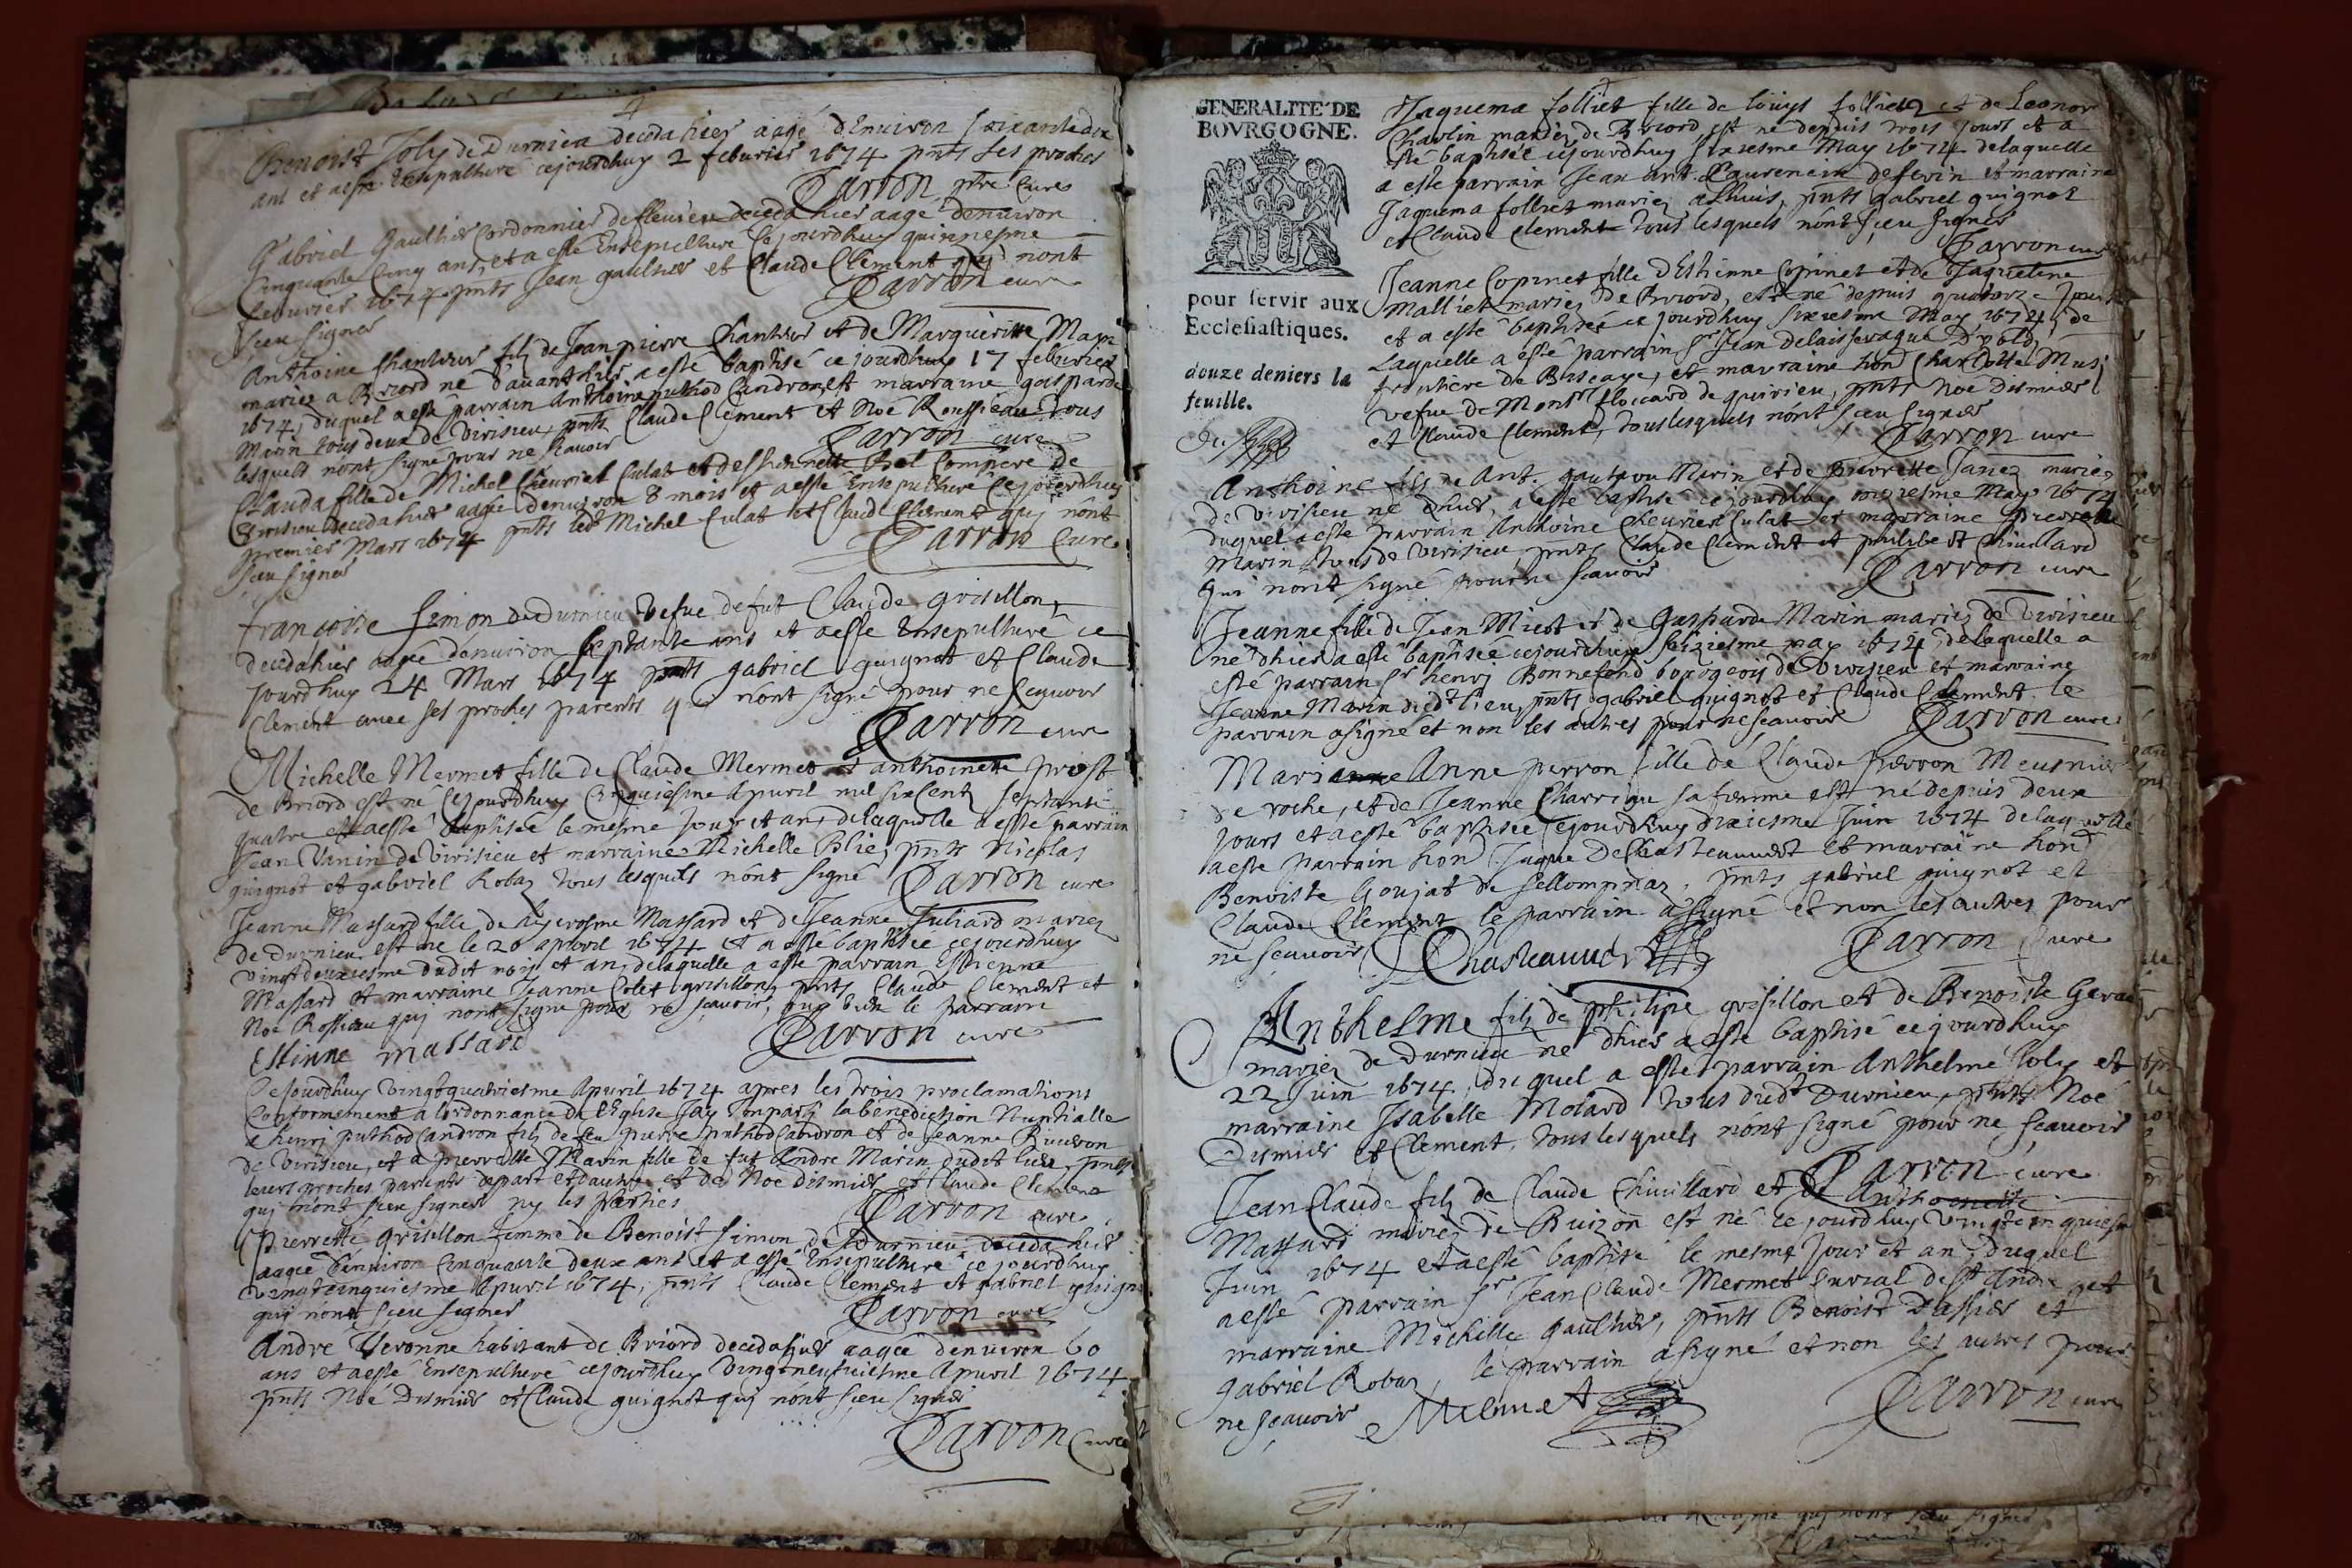 Benoist Joly de Durnieu deceda hier aagé d'Environ soixante dix
ans et a esté Ensepulturé cejourdhuy 2 febvrier 1674 pnts ses proches
Parron ptre Curé
Gabriel Gaultier Cordonnier de fleurieu deceda hier aage denviron
Cinquante Cinq ans, et a esté Ensepulturé Ce jourdhuy quinziesme
febvrier 1674 pnts Jean gaultier et Claude Clement qui nont
sceu signer
Parron curé
Anthoine Chanteur fils de Jean pierre Chanteur et de Margueritte
mariez a Briord né d'avanthier a esté baptisé ce jourdhuy 17 febvrier
1674, duquel a esté parrain Anthoine puthod Candron, et marraine gasparde
Marin tous deux de Virisieu, pnts Claude Clement et Noé Rossieau tous
lesquels nont signe pour ne scavoir
Parron curé
Clauda fille de Michel Cheuvrier Culat et desthiennette Bel Compere de
Virisieu deceda hier aagée denviron 8 mois et a esté Ensepulturé Cejourdhuy
premier Mars 1674 pnts led Michel Culat et Claude Clement qui nont
sceu signer
Parron Curé
françoise Simon de Durnieu Vefue de fut Claude grisillon,
deceda hier aagée denviron septante ans et a esté Ensepulturé ce
jourdhuy 24 Mars 1674 pnts gabriel guignot et Claude
Clement avec ses proches parents qui nont signé pour ne scavoir
Parron curé
Michelle Mermet fille de Claude Mermet et anthoinette prost
de Briord est né Cejourdhuy Cinquiesme Apvril mil sixCent septante
quatre et a esté baptisée le mesme jour et an, de laquelle a esté parrain
Jean Vanin de Virisieu et marraine Michelle Blié, pnts Nicolas
guignot et gabriel Robaz tous lesquels nont signé
Parron curé
Jeanne Massard fille de hyerosme Massard et de Jeanne Juliard mariez
de Durnieu est né le 20 apvril 1674 et a esté baptisée cejourdhuy
Vingtdeuxiesme dudit mois et an, de laquelle a esté parrain Estienne
Massard et marraine Jeanne Colet grisillon, pnts Claude Clement et
Noé Rossieau qui nont signe pour ne scavoir, ouy bien le parrain
Estinne massard
Parron curé
Cejourdhuy Vingtquatriesme Apvril 1674 apres les trois proclamations
Conformement a lordonnance de l'Eglise Jay Imparty la benediction Nuptialle
a henri puthod Candron fils de feu pierre puthod Candron et de Jeanne
de Virisieu, et a pierrette Marin fille de fut Andre Marin dudit lieu, pnts
leurs proches parents depart et dautre et de Noé Dismier et Claude Clement
qui nont sceu signer ny les parties
Parron curé
Pierrette grisillon femme de Benoist Simon de Durnieu deceda hier
aagée d'environ Cinquante deux ans et a esté Ensepulturé ce jourdhuy
Vingtcinquiesme Apvril 1674, pnts Claude Clement et gabriel guignot
qui nont sceu signer
Parron curé
André Veronne habitant de Briord deceda hier aagée denviron 60
ans et a esté Ensepulturé cejourdhuy Vingtneufviesme Apvril 1674
pnts Noé Dismier et Claude guignot qui nont sceu signer
Parron Curé
GENERALITE DE
BOVRGOGNE.
pour servir aux
Ecclesiastiques.
douze deniers la
feuille.
Jaquema folliet fille de louys folliet et de Leonor
Charlin mariez de Briord, est né depuis trois jours et a
esté baptisée cejourdhuy sixiesme May 1674 de laquelle
a esté parrain Jean ant. Laurencin et marraine
Jaquema folliet mariez a Lhuis, pnts gabriel guignot
et Claude Clement tous lesquels nont sceu signer
Parron curé
Jeanne Copinet fille d'Estienne Copinet et de Jaqueline
Malliet mariez de Briord, est né depuis quatorze jours
et a esté baptisée ce jourdhuy sixiesme May 1674, de
Laquelle a esté parrain sr Jean
frontiere de Biscaye, et marraine hon Charlotte
Vefue de Monsr floccard de quirieu, pnts Noé Dismier
et Claude Clement, tous lesquels nont sceu signer
Parron curé
Anthoine fils de Ant. Marin et de pierrette Janez mariez
de Virisieu né d'hier, a esté baptisé ce jourdhuy onziesme May 1674
duquel a esté parrain Anthoine Cheuvrier Culat et marraine pierrette
Marin tous de Virisieu, pnts Claude Clement et philibert Chinillard
Qui nont signé pour ne scavoir
Parron curé
Jeanne fille de Jean Miest et de Gasparde Marin mariez de Virisieu
né d'hier a esté baptisée cejourdhuy seiziesme may 1674, de laquelle a
esté parrain sr henri Bonnefond bourgeois de Virisieu et marraine
Jeanne Marin dudt lieu, pnts gabriel guignot et Claude Clement. le
parrain a signé et non les autres pour ne scavoir
Parron curé
Marianne Anne perron fille de Claude perron Meusnier
de roche, et de Jeanne Charrigu sa femme est né depuis deux
jours et a esté baptisée Cejourdhuy dixiesme Juin 1674 de laquelle
a esté parrain hon Jaque De Chasteauvert et marraine hon
Benoiste Goujat de sellompnaz, pnts gabriel guignot et
Claude Clement le parrain a signé et non les autres pour
ne scavoir
Chasteauvert
Parron Curé
Anthelme fils de philipe gresillon et de Benoiste
mariez de Durnieu né d'hier a esté baptisé cejourdhuy
22 Juin 1674, duquel a esté parrain Anthelme Joly et
marraine Isabelle Molard tous dudt Durnieu, pnts Noé
Dismier et Clement, tous lesquels nont signé pour ne scavoir
Parron curé
Jean Claude fils de Claude Chinillard et de Anthoinette
Massard mariez de Buizon est né ce jourdhuy Vingtcinquiesme
Juin 1674 et a esté baptisé le mesme jour et an, duquel
a esté parrain sr Jean Claude Mermet Curial de st André et
marraine Michelle Gaultier, pnts Benoist Dassier et
gabriel Robaz, le parrain a signé et non les autres pour
ne scavoir
Mermet
Parron curé